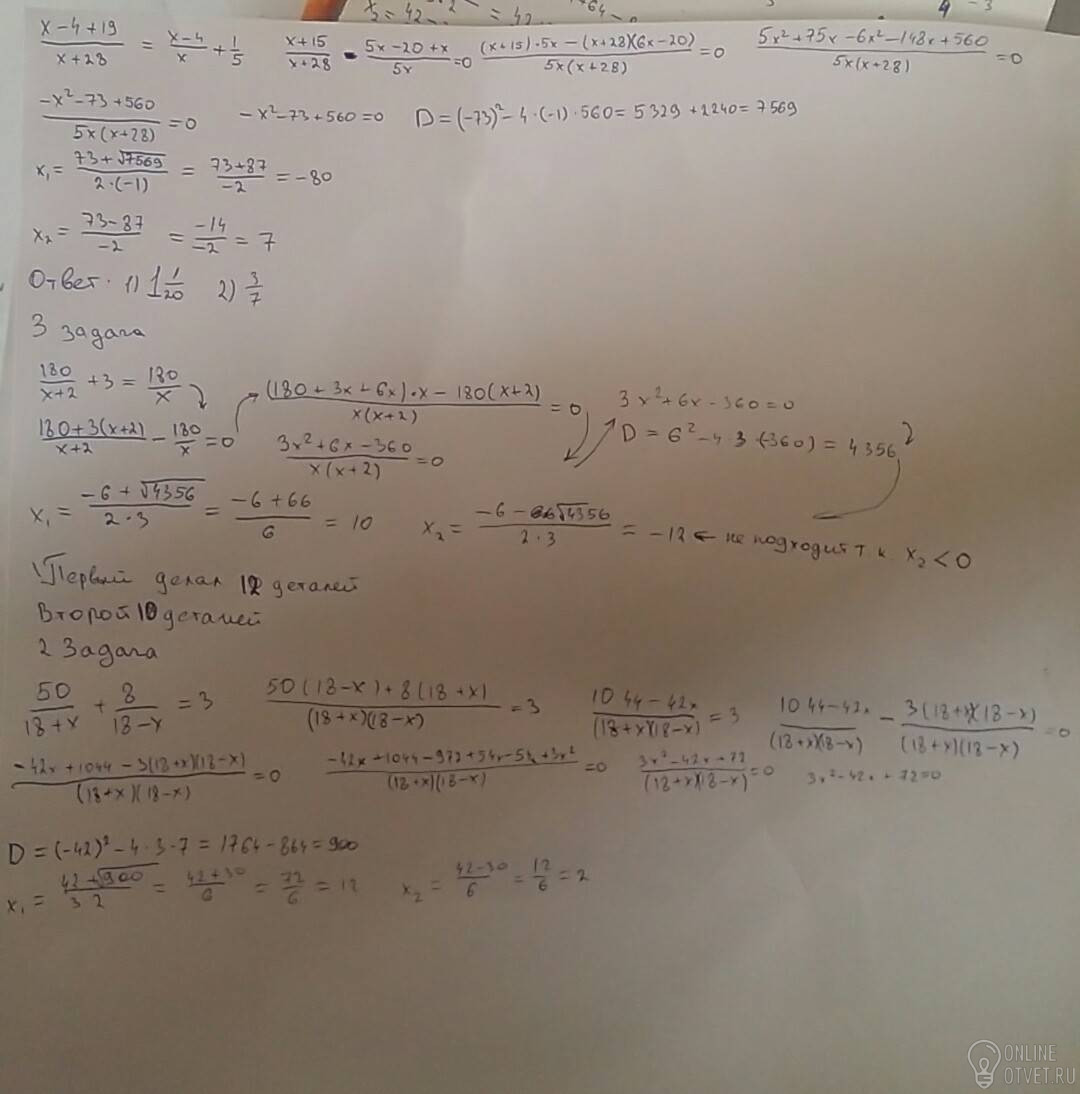 x₂ = 42 = 42
4 -3
(x-4+19)/(x+28) = (x-4)/x + 1/5 (x+15)/(x+28) - (5x-20+x)/5x =0 ((x+15)·5x-(x+28)(6x-20))/(5x(x+28)) =0 (5x²+75x-6x²-148x+560)/(5x(x+28)) =0
(-x²-73+560)/(5x(x+28)) =0 -x²-73+560=0 D=(-73)²-4·(-1)·560=5329+2240=7569
x₁= (73+√7569)/(2·(-1)) = (73+87)/(-2) = -80
x₂= (73-87)/(-2) = (-14)/(-2) = 7
Ответ. 1) 1 1/20 2) 3/7
3 задача
180/(x+2) +3= 180/x
(180+3(x+2))/(x+2) - 180/x =0 ((180+3x+6x)·x-180(x+2))/(x(x+2)) =0
(3x²+6x-360)/(x(x+2)) =0
3x²+6x-360=0
D=6²-4 3·(-360)=4356
x₁= (-6+√4356)/(2·3) = (-6+66)/6 = 10 x₂= (-6-√4356)/(2·3) = -12 ← не подходит т к x₂<0
Первый делал 12 деталей
Второй 10 деталей
2 Задача
50/(18+x) + 8/(18-x) =3 (50(18-x)+8(18+x))/((18+x)(18-x)) =3 (1044-42x)/((18+x)(18-x)) =3 (1044-42x)/((18+x)(18-x)) - (3(18+x)(18-x))/((18+x)(18-x)) =0
(-42x+1044-3(18+x)(18-x))/((18+x)(18-x)) =0 (-42x+1044-972+54x-54x+3x²)/((18+x)(18-x)) =0 (3x²-42x+72)/((18+x)(18-x)) =0 3x²-42x+72=0
D=(-42)²-4·3·7=1764-864=900
x₁= (42+√900)/(3 2) = (42+30)/6 = 72/6 = 12 x₂= (42-30)/6 = 12/6 = 2
ONLINE
OTVET.RU